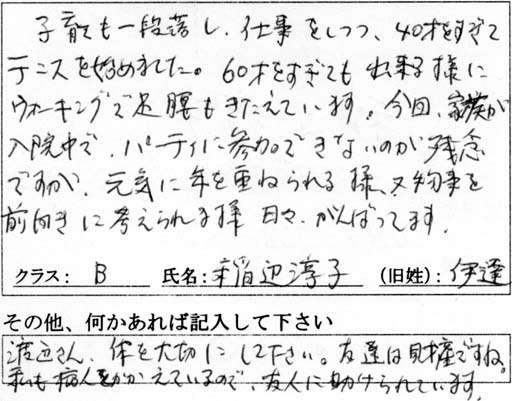 子育ても一段落し、仕事をしつつ、40才をすぎて
テニスを始めました。60才をすぎても出来る様に
ウォーキングで足腰もきたえています。今回、家族が
入院中で、パーティに参加できないのが残念
ですが、元気に年を重ねられる様、又物事を
前向きに考えられます様 日々、がんばってます。
クラス： B 氏名：稲辺淳子 （旧姓）：伊達
その他、何かあれば記入して下さい
渡辺さん、体を大切にして下さい。友達は財産ですね。
私も病人をかかえているので、友人に助けられています。